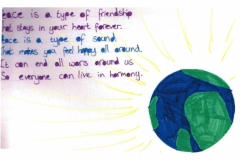 eace is a type of friendship
hat stays in your heart forever.
eace is a type of sound
hat makes you feel happy all around.
It can end all wars around us
So everyone can live in harmony.